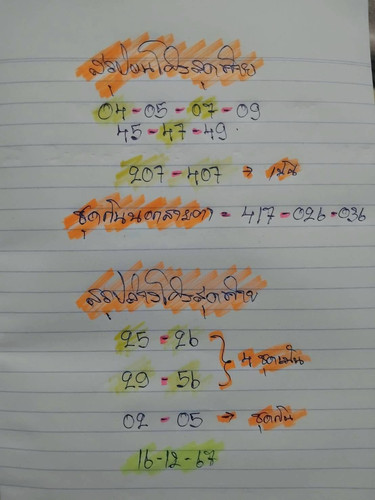 สรุปบนโค้งสุดท้าย
04-05-07-09
45-47-49.
207-407 → เน้น
ชุดกันนอกสายตา = 417-026-036
สรุปล่างโค้งสุดท้าย
25-26
29-56 } 4 ชุดเน้น
02-05 → ชุดกัน
16-12-67